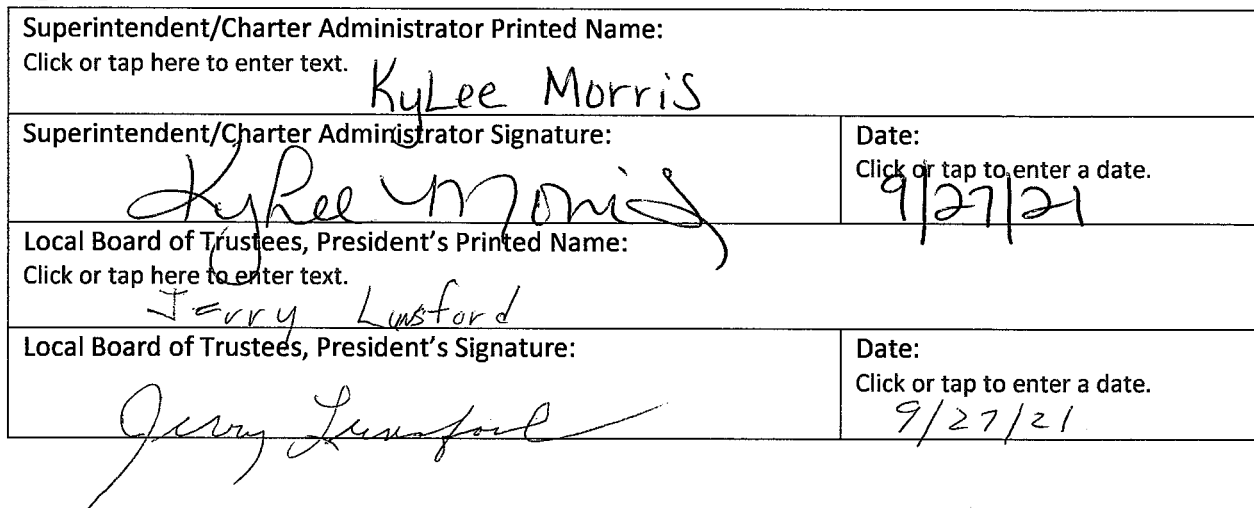 Superintendent/Charter Administrator Printed Name:
Click or tap here to enter text.
KyLee Morris
Superintendent/Charter Administrator Signature:
Date:
Click or tap to enter a date.
KyLee Morris
9/27/21
Local Board of Trustees, President's Printed Name:
Click or tap here to enter text.
Jerry Lunsford
Local Board of Trustees, President's Signature:
Date:
Click or tap to enter a date.
Jerry Lunsford
9/27/21